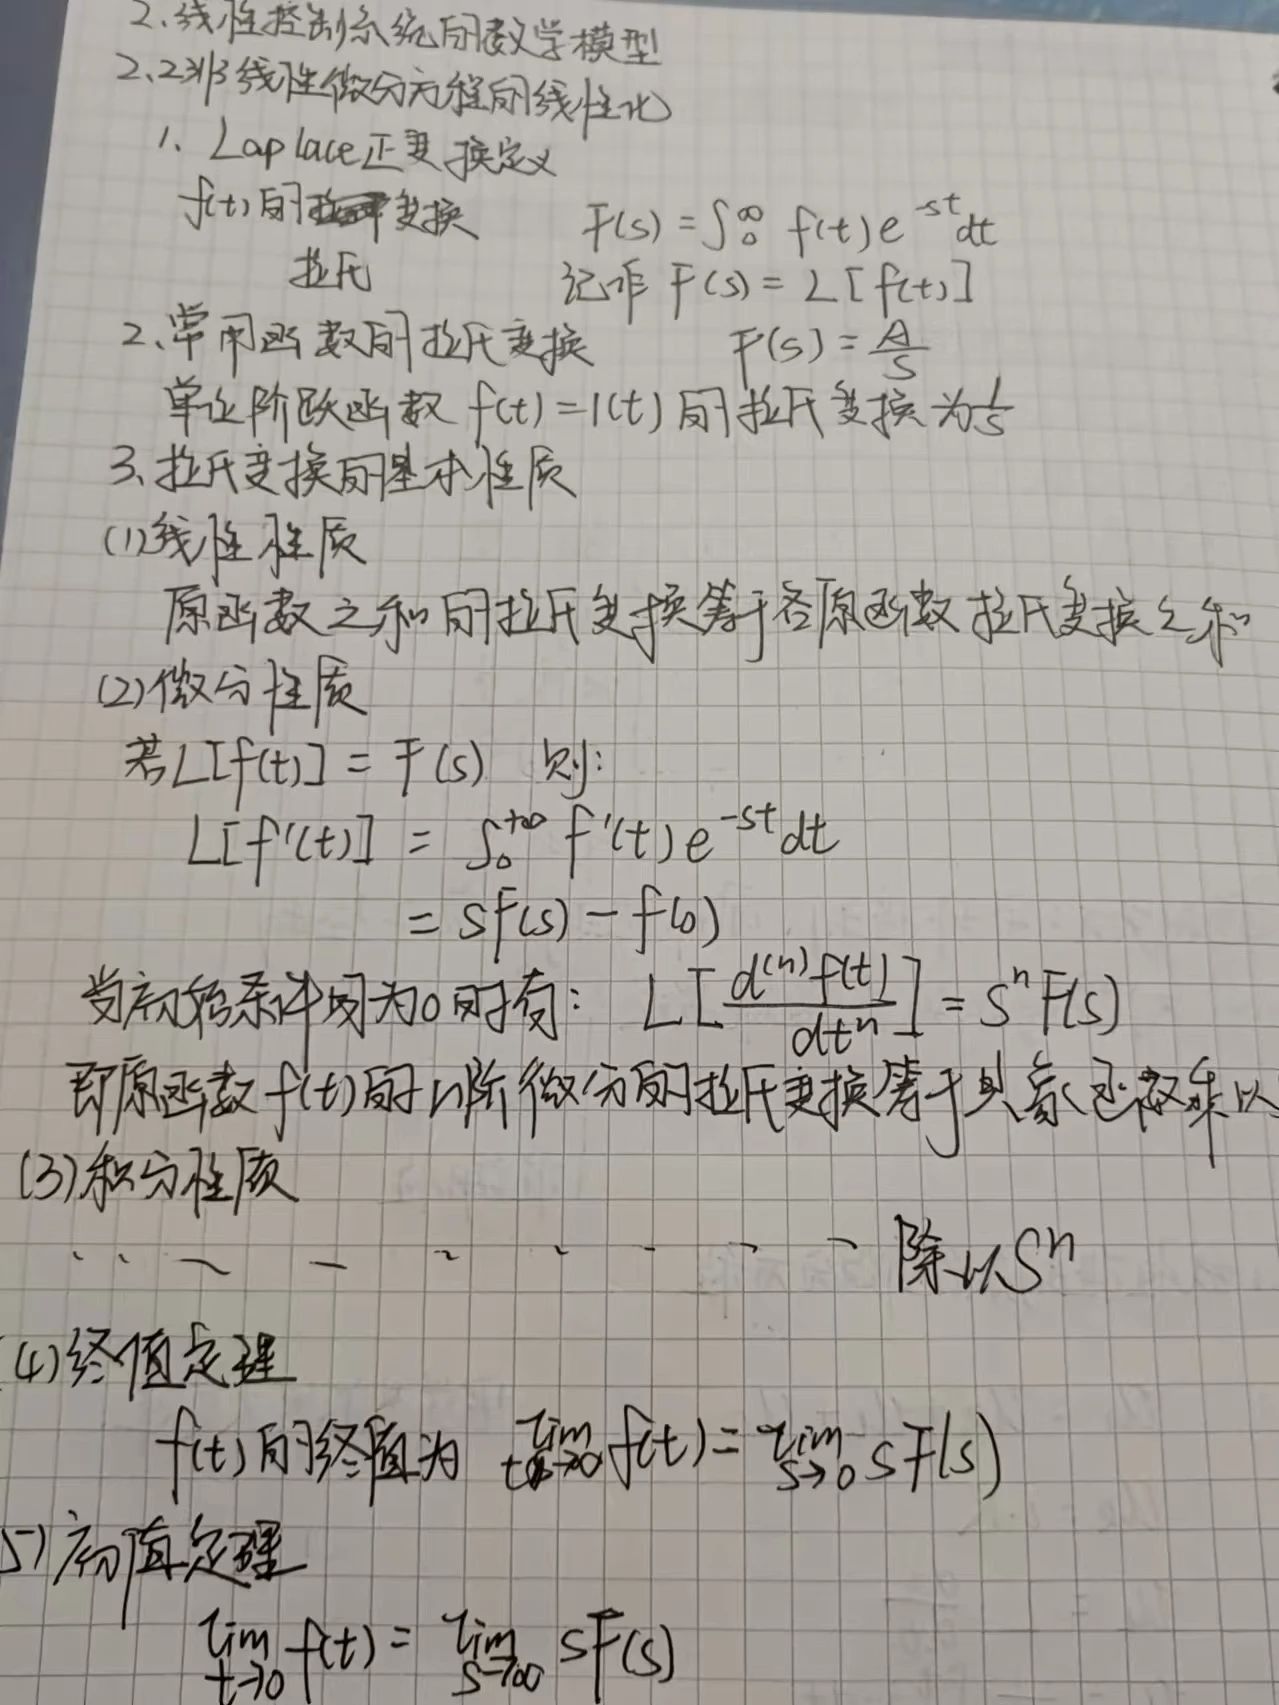 2.线性控制系统的数学模型
2.2非线性微分方程的线性化
1、Laplace正变换定义
f(t)的拉变换 F(s)=∫₀^∞ f(t)e^-st dt
拉氏 记作 F(s)=L[f(t)]
2、常用函数的拉氏变换 F(s)=A/S
单位阶跃函数 f(t)=1(t)的拉氏变换为1/S
3、拉氏变换的基本性质
(1)线性性质
原函数之和的拉氏变换等于各原函数拉氏变换之和
(2)微分性质
若L[f(t)]=F(s) 则:
L[f'(t)] = ∫₀^+∞ f'(t)e^-st dt
= SF(s)-f(0)
当初始条件均为0时有: L[d^(n)f(t)/dt^n]=S^n F(s)
即原函数f(t)的n阶微分的拉氏变换等于其象函数乘以
(3)积分性质
除以S^n
(4)终值定理
f(t)的终值为 lim t→∞ f(t)=lim s→0 SF(s)
5)初值定理
lim t→0 f(t)=lim s→∞ SF(s)